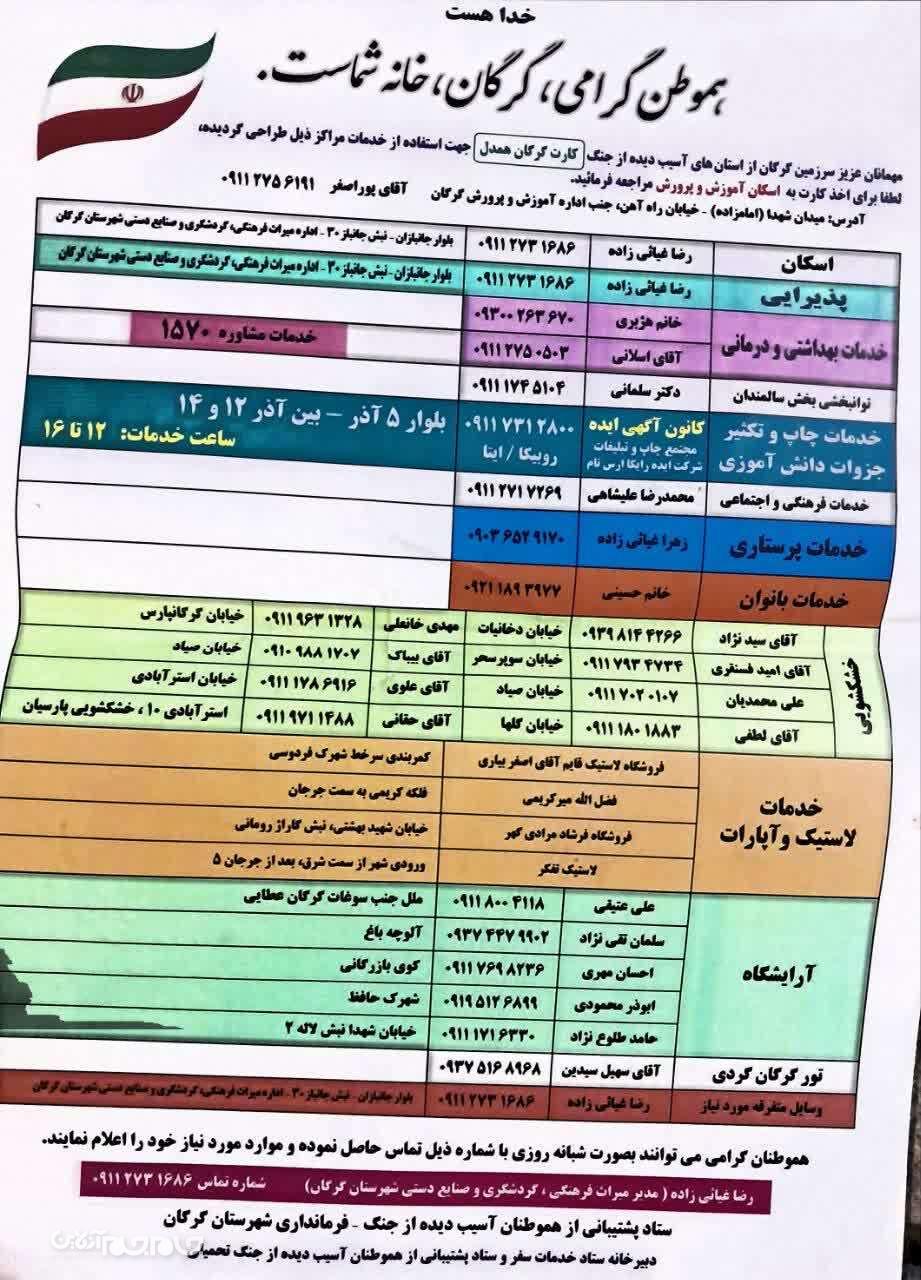 خدا هست
هموطن گرامی، گرگان، خانه شماست.
مهمانان عزیز سرزمین گرگان از استان های آسیب دیده از جنگ کارت گرگان همدل جهت استفاده از خدمات مراکز ذیل طراحی گردیده،
لطفا برای اخذ کارت به اسکان آموزش و پرورش مراجعه فرمائید.
آدرس: میدان شهدا (امامزاده) - خیابان راه آهن، جنب اداره آموزش و پرورش گرگان آقای پوراصغر ۰۹۱۱ ۲۷۵ ۶۱۹۱
اسکان رضا غیاثی زاده ۰۹۱۱ ۲۷۳ ۱۶۸۶ بلوار جانبازان - نبش جانباز ۳۰ - اداره میراث فرهنگی، گردشگری و صنایع دستی شهرستان گرگان
پذیرایی رضا غیاثی زاده ۰۹۱۱ ۲۷۳ ۱۶۸۶ بلوار جانبازان - نبش جانباز ۳۰ - اداره میراث فرهنگی، گردشگری و صنایع دستی شهرستان گرگان
خدمات بهداشتی و درمانی خانم هژبری ۰۹۳۰۰ ۲۶۳ ۶۷۰
آقای اسلانی ۰۹۱۱ ۲۷۵ ۰۵۰۳ خدمات مشاوره ۱۵۷۰
توانبخشی بخش سالمندان دکتر سلمانی ۰۹۱۱ ۱۷۴ ۵۱۰۴
خدمات چاپ و تکثیر جزوات دانش آموزی کانون آگهی ایده ۰۹۱۱ ۷۳۱ ۲۸۰۰ بلوار ۵ آذر - بین آذر ۱۲ و ۱۴
مجتمع چاپ و تبلیغات روبیکا / ایتا ساعت خدمات: ۱۲ تا ۱۶
شرکت ایده رایکا ارس نام
خدمات فرهنگی و اجتماعی محمدرضا علیشاهی ۰۹۱۱ ۲۷۱ ۷۲۶۹
خدمات پرستاری زهرا غیاثی زاده ۰۹۰۳ ۶۵۲ ۹۱۷۰
خدمات بانوان خانم حسینی ۰۹۲۱ ۱۸۹ ۳۹۷۷
خشکشویی
آقای سید نژاد ۰۹۳۹ ۸۱۴ ۴۲۶۶ خیابان دخانیات مهدی خانعلی ۰۹۱۱ ۹۶۳ ۱۳۲۸ خیابان گرگانپارس
آقای امید فسنقری ۰۹۱۱ ۷۹۳ ۴۷۳۴ خیابان سوپرسحر آقای بیباک ۰۹۱۰ ۹۸۸ ۱۷۰۷ خیابان صیاد
علی محمدیان ۰۹۱۱ ۷۰۲ ۰۱۰۷ خیابان صیاد آقای علوی ۰۹۱۱ ۱۷۸ ۶۹۱۶ خیابان استرآبادی
آقای لطفی ۰۹۱۱ ۱۸۰ ۱۸۸۳ خیابان گلها آقای حقانی ۰۹۱۱ ۹۷۱ ۱۴۸۸ استرآبادی ۱۰، خشکشویی پارسیان
خدمات لاستیک و آپارات
فروشگاه لاستیک قایم آقای اصغر بیاری کمربندی سرخط شهرک فردوسی
فضل الله میرکریمی فلکه کریمی به سمت جرجان
فروشگاه فرشاد مرادی گهر خیابان شهید بهشتی، نبش گاراژ رومانی
لاستیک تفکر ورودی شهر از سمت شرق، بعد از جرجان ۵
آرایشگاه
علی عتیقی ۰۹۱۱ ۸۰۰ ۴۱۱۸ ملل جنب سوغات گرگان عطایی
سلمان تقی نژاد ۰۹۳۷ ۴۴۷ ۹۹۰۲ آلوچه باغ
احسان مهری ۰۹۱۱ ۷۶۹ ۸۲۳۶ کوی بازرگانی
ابوذر محمودی ۰۹۱۹ ۵۱۲ ۶۸۹۹ شهرک حافظ
حامد طلوع نژاد ۰۹۱۱ ۱۷۱ ۶۳۳۰ خیابان شهدا نبش لاله ۲
تور گرگان گردی آقای سهیل سیدین ۰۹۳۷ ۵۱۶ ۸۹۶۸
وسایل متفرقه مورد نیاز رضا غیاثی زاده ۰۹۱۱ ۲۷۳ ۱۶۸۶ بلوار جانبازان - نبش جانباز ۳۰ - اداره میراث فرهنگی، گردشگری و صنایع دستی شهرستان گرگان
هموطنان گرامی می توانند بصورت شبانه روزی با شماره ذیل تماس حاصل نموده و موارد مورد نیاز خود را اعلام نمایند.
رضا غیاثی زاده ( مدیر میراث فرهنگی ، گردشگری و صنایع دستی شهرستان گرگان) شماره تماس ۰۹۱۱ ۲۷۳ ۱۶۸۶
ستاد پشتیبانی از هموطنان آسیب دیده از جنگ - فرمانداری شهرستان گرگان
دبیرخانه ستاد خدمات سفر و ستاد پشتیبانی از هموطنان آسیب دیده از جنگ تحمیلی
جام‌جم آنلاین